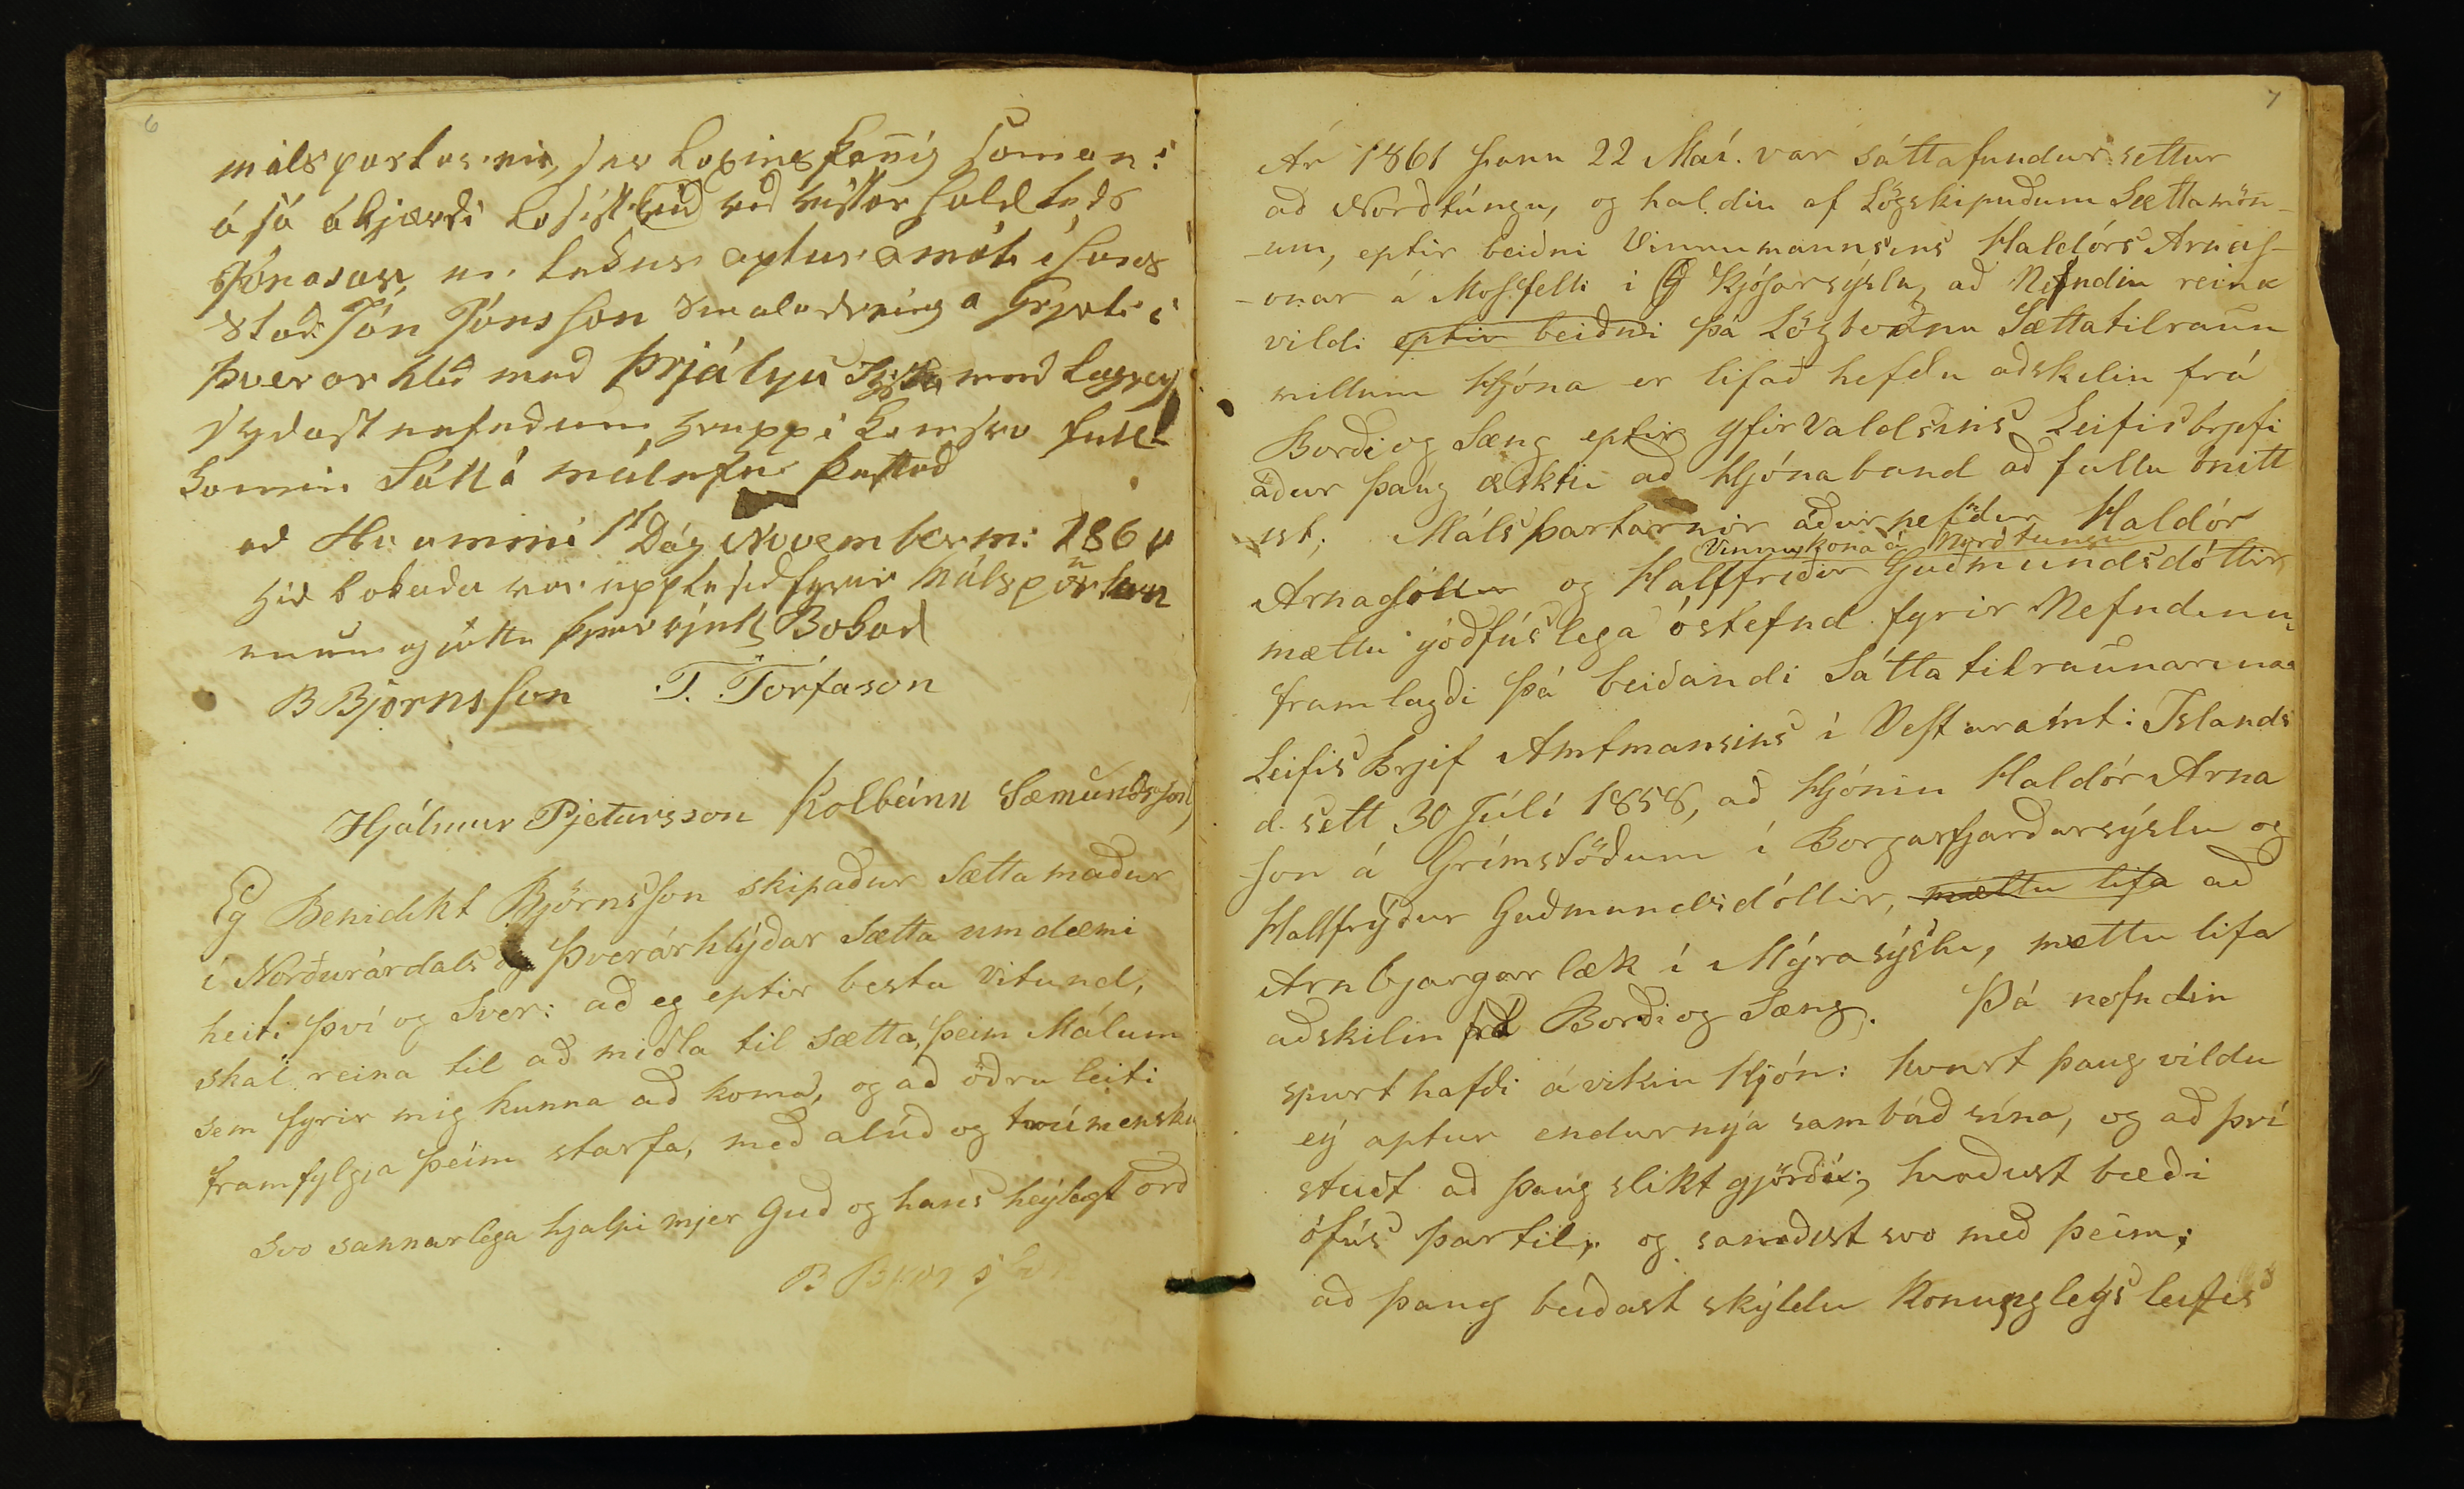 6
málspartarnir, sér Loxins þannig saman:
á sá ákjærði vid
Jónasar, er tekur aptur á móti i hans
stað Jón Jónsson á Grjoti i
Þverarhlid med
sydast nefndum, uppi
komin Sátt á málefni þettad
ad Hvammi 1t Dag Novemberm: 1860
hid bokada var upplesid fyrir málspörtun
unum og játtu þeir rjett Bokad
B Bjornsson T. Torfason
Hjálmur Pjetursson Kolbeinn Sæmundsson
Eg Benidikt Björnsson skipaður Sættamaður
í Norðurárdals og Þverárhlýðar Sætta umdæmi
heiti því og Sver: að eg eptir bestu Vitund,
skal reina til að miðla til Sætta, þeim Málum
sem fyrir mig kunna að koma, og að öðru leiti
framfylgja þeim starfa, með alúð og trúmensku
Svo sannarlega hjalpi mjer Guð og hans heýlagt orð
B B
7
Ár 1861 þann 22 Maí. var sáttafundur settur
að Norðtúngu, og haldin af Lögskipuðum Sættamön-
-um, eptir beiðni Vinnumannsins Haldórs Arnas-
-onar á Mosfelli i G Kjósarsýslu, að Nefndin reina
vildi eptir beiðni þá Lögboðnu Sættatilraun
millum Hjóna er lifað hefðu aðskilin frá
Borði og Sæng eptir yfirvaldsins Leifisbrjefi
áður þaug æsktu að Hjónaband að fullu ónitt
ist; Málspartarnir áðurnefdur Haldór
Vinnukona á Norðtungu
Arnasson og Hallfriður Guðmundsdóttir
mættu góðfúslega óstefnd fyrir Nefndinni,
framlagði þá beiðandi Sáttatilraunarinnar
Leifis Brjef Amtmansins í Vesturamti Islands
d. sett 30 Júlí 1858, að Hjónin Haldór Arna
son á Grímstöðum í Borgarfjarðarsýslu og
Hallfrýður Guðmundsdóttir, mættu lifa að
Arnbjargarlæk í Mýrasýslu, mættu lifa
aðskilin frá Borði og Sæng. Þá nefndin
spurt hafði ávikin Hjón: hvort þaug vildu
eý aptur endurnýa sambúð sína, og að því
stuðt að þaug slikt gjörðu; kvoðust bæði
ófús þartil, og samdist svo með þeim;
að þaug beiðast skýldu Konungleýs leifis